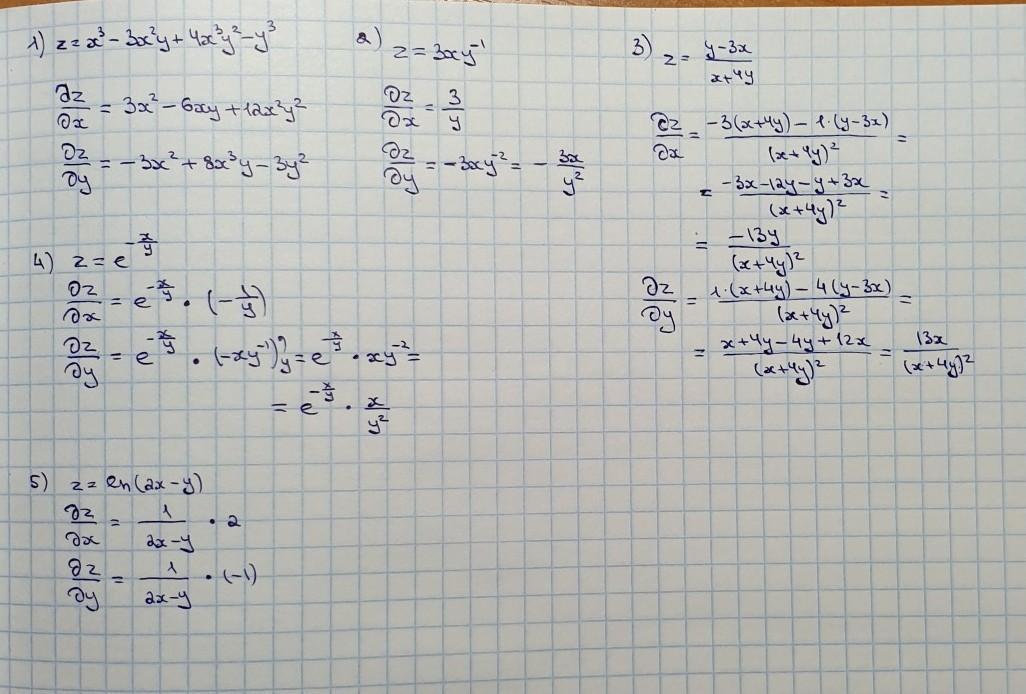 1) z = x³ − 3x²y + 4x³y² − y³
∂z/∂x = 3x² − 6xy + 12x²y²
∂z/∂y = −3x² + 8x³y − 3y²
2) z = 3xy⁻¹
∂z/∂x = 3/y
∂z/∂y = −3xy⁻² = − 3x/y²
3) z = (y−3x)/(x+4y)
∂z/∂x = (−3(x+4y) − 1·(y−3x))/(x+4y)² =
= (−3x−12y−y+3x)/(x+4y)² =
= −13y/(x+4y)²
∂z/∂y = (1·(x+4y) − 4(y−3x))/(x+4y)² =
= (x+4y−4y+12x)/(x+4y)² = 13x/(x+4y)²
4) z = e^(−x/y)
∂z/∂x = e^(−x/y) · (−1/y)
∂z/∂y = e^(−x/y) · (−xy⁻¹)'y = e^(−x/y) · xy⁻² =
= e^(−x/y) · x/y²
5) z = ln(2x−y)
∂z/∂x = 1/(2x−y) · 2
∂z/∂y = 1/(2x−y) · (−1)